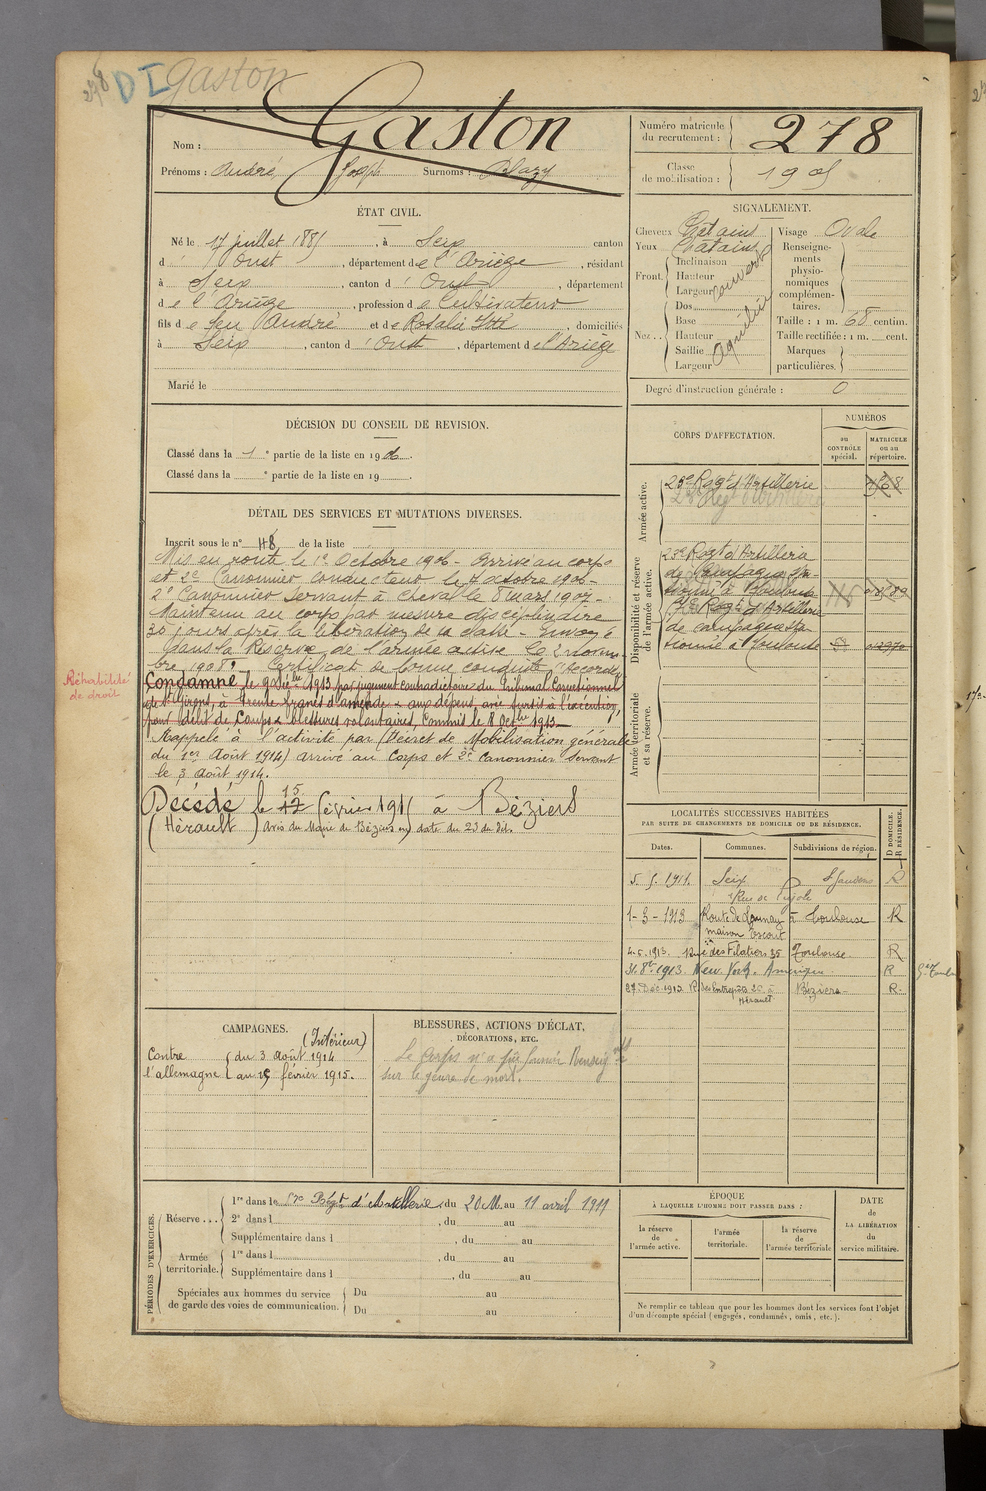 278 DI Gaston
Nom : Gaston
Prénoms : André Joseph Surnoms : Blazy
Numéro matricule du recrutement : 278
Classe de mobilisation : 1905
ÉTAT CIVIL.
Né le 17 juillet 1885, à Seix canton
d' Oust, département de l'Ariège, résidant
à Seix, canton d' Oust, département
de l'Ariège, profession de Cultivateur
fils de feu André et de Rosalie, domiciliés
à Seix, canton d' Oust, département de l'Ariège
Marié le
SIGNALEMENT.
Cheveux Châtains Visage Ovale
Yeux Châtains
Renseignements physionomiques complémentaires.
Front. Inclinaison
Hauteur
Largeur
couvert
Nez .. Dos
Base
Hauteur
Saillie
Largeur
Aquilin
Taille : 1 m. 68 centim.
Taille rectifiée : 1 m. cent.
Marques particulières.
Degré d'instruction générale : 0
DÉCISION DU CONSEIL DE REVISION.
Classé dans la 1e partie de la liste en 1906.
Classé dans la e partie de la liste en 19
DÉTAIL DES SERVICES ET MUTATIONS DIVERSES.
Inscrit sous le n° 48 de la liste
Mis en route le 1er Octobre 1906 - Arrivé au corps
et 2e Canonnier conducteur le 7 octobre 1906 -
2e Canonnier servant à cheval le 8 mars 1907 -
Maintenu au corps par mesure disciplinaire
30 jours après la libération de la classe - Envoyé
dans la Réserve de l'armée active le 2 novem-
bre 1908. Certificat de bonne conduite "Accordé"
Réhabilité de droit
Condamné le 9 Déc. 1913 par jugement contradictoire du Tribunal Correctionnel
de St Girons, à trente francs d'amende & aux dépens, avec sursis à l'exécution,
pour délit de Coups & blessures volontaires, Commis le 8 Octbre 1913 -
Rappelé à l'activité par (Décret de Mobilisation générale
du 1er Août 1914) arrivé au Corps et 2e Canonnier Servant
le 3 Août 1914.
Décédé le 17 15 février 1915 à Béziers
(Hérault) Avis du Maire de Béziers en date du 23 du dit.
CORPS D'AFFECTATION.
NUMÉROS
au CONTRÔLE spécial.
MATRICULE ou au répertoire.
Armée active.
23e Regt d'Artillerie
Disponibilité et réserve de l'armée active.
23e Regt d'Artillerie
de Campagne sta-
tionné à Toulouse
57e Regt d'Artillerie
de campagne sta-
tionné à Toulouse
Armée territoriale et sa réserve.
LOCALITÉS SUCCESSIVES HABITÉES
PAR SUITE DE CHANGEMENTS DE DOMICILE OU DE RÉSIDENCE.
Dates. Communes. Subdivisions de région. D DOMICILE. R RÉSIDENCE.
5. 5. 1911. Seix St Gaudens R
Rue de
1-3-1913 Route de Launay à Toulouse R
maison Escout
4-5-1913 Rue des Filatiers 35 Toulouse R
31. 8bre 1913 New-York. Amérique R
27 Déc 1913 R. des Entrepôts 26 à Béziers R.
Hérault
CAMPAGNES.
(Intérieur)
Contre l'allemagne du 3 août 1914
au 15 février 1915.
BLESSURES, ACTIONS D'ÉCLAT, DÉCORATIONS, ETC.
Le Corps n'a pu fournir Renseigt
sur le genre de mort.
PÉRIODES D'EXERCICES.
Réserve ... 1re dans le 57e Régt d'Artillerie, du 20 M. au 11 avril 1911
2e dans l , du au
Supplémentaire dans l , du au
Armée territoriale. 1re dans l , du au
Supplémentaire dans l , du au
Spéciales aux hommes du service de garde des voies de communication. Du au
Du au
ÉPOQUE
À LAQUELLE L'HOMME DOIT PASSER DANS :
la réserve de l'armée active.
l'armée territoriale.
la réserve de l'armée territoriale
DATE de LA LIBÉRATION du service militaire.
Ne remplir ce tableau que pour les hommes dont les services font l'objet
d'un décompte spécial (engagés, condamnés, omis, etc.).